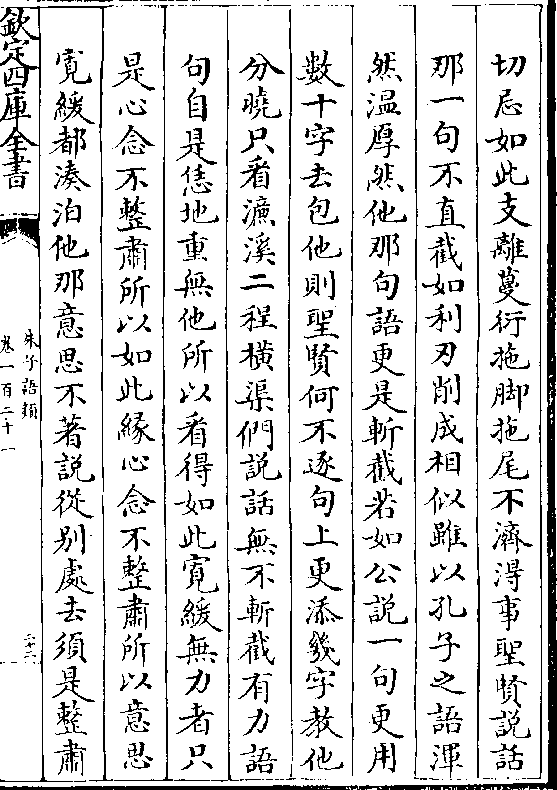 切忌如此支離蔓衍拖脚拖尾不濟得事聖賢説話
那一句不直截如利刃削成相似雖以孔子之語渾
然温厚然他那句語更是斬截若如公説一句更用
數十字去包他則聖賢何不逐句上更添幾字教他
分曉只看濂溪二程横渠們説話無不斬截有力語
句自是恁地重無他所以看得如此寛緩無力者只
是心念不整肅所以如此緣心念不整肅所以意思
寛緩都湊泊他那意思不著説從别處去須是整肅
欽定四庫全書
朱子語類
卷一百二十一